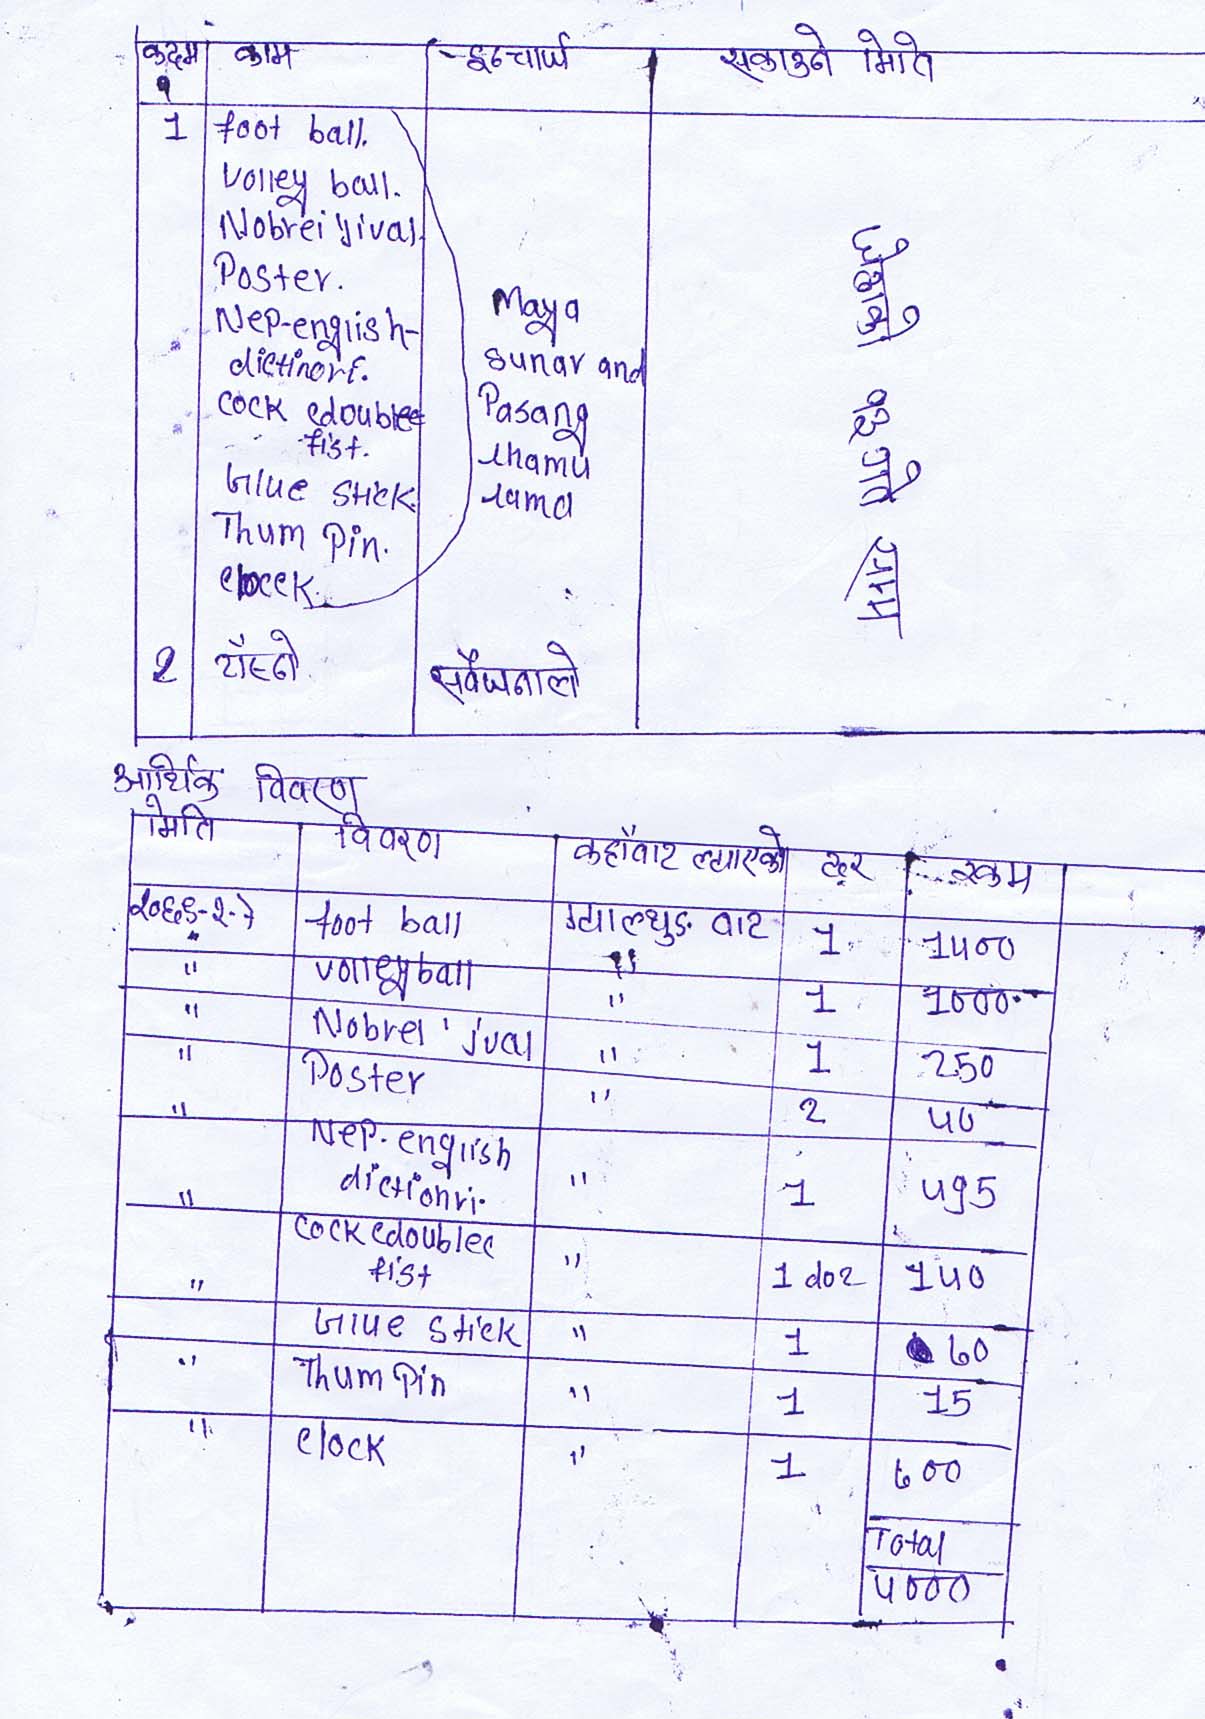 कदम काम इन्चार्ज सकाउने मिति
१
1 foot ball.
volley ball.
Nobrei jival.
Poster.
Nep-english-
dictinori.
cock cdoublec
fist.
Glue stick.
Thum Pin.
clocek.
Maya
sunar and
Pasang
lhamu
lama
जेठको १३ गते सम्म
2 बाँड्ने सबैजनाले
आर्थिक विवरण
मिति विवरण कहाँबाट ल्याएको दर रकम
२०६६-२-७ foot ball ग्याल्थुङ बाट 1 1५00
" volleyball " 1 1000
" Nobrei 'jval " 1 250
" Poster " 2 ५0
" Nep-english " 1 ५95
dictionri.
" cock cdoublec " 1 doz 1५0
fist
" Glue stick " 1 60
" Thum Pin " 1 15
" clock " 1 600
Total
५000